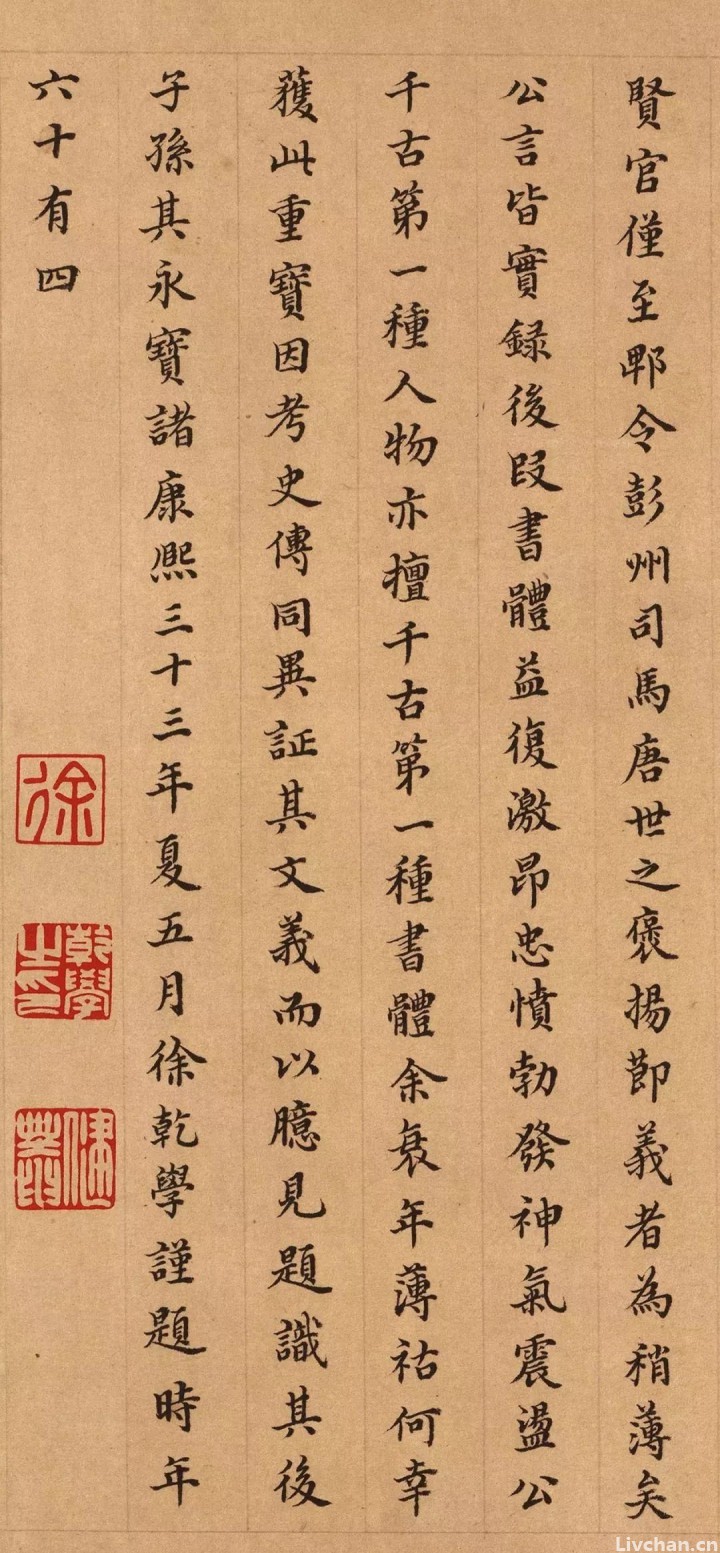 賢官僅至郫令彭州司馬唐世之褒揚節義者為稍薄矣
公言皆實録後段書體益復激昂忠憤勃發神氣震盪公
千古第一種人物亦擅千古第一種書體余衰年薄祜何幸
獲此重寶因考史傳同異証其文義而以臆見題識其後
子孫其永寶諸康熙三十三年夏五月徐乾學謹題時年
六十有四
徐
乾學之印
健菴
Livchan.cn